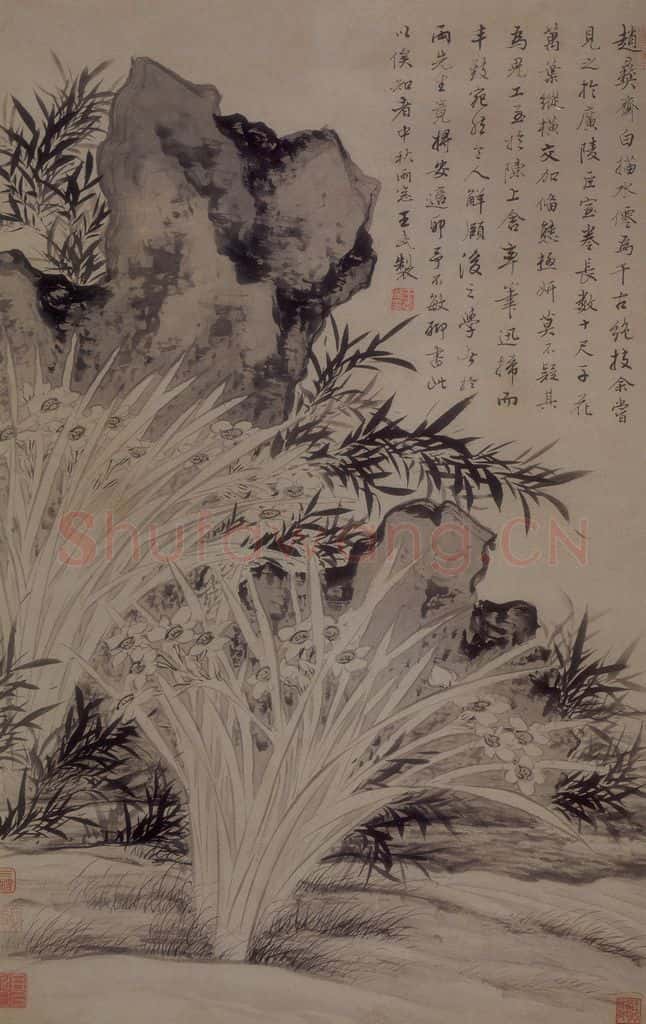 趙彝齋白描水僊為千古絶技余嘗
見之於廣陵巨室卷長數十尺千花
萬葉縱橫交加備態極妍莫不疑其
為鬼工至於陳上舍率筆迅掃而
丰致宛然令人解頤後之學者於
兩先生竟將安適耶予不敏聊書此
以俟知者中秋雨窓王武製
Shufawang.CN